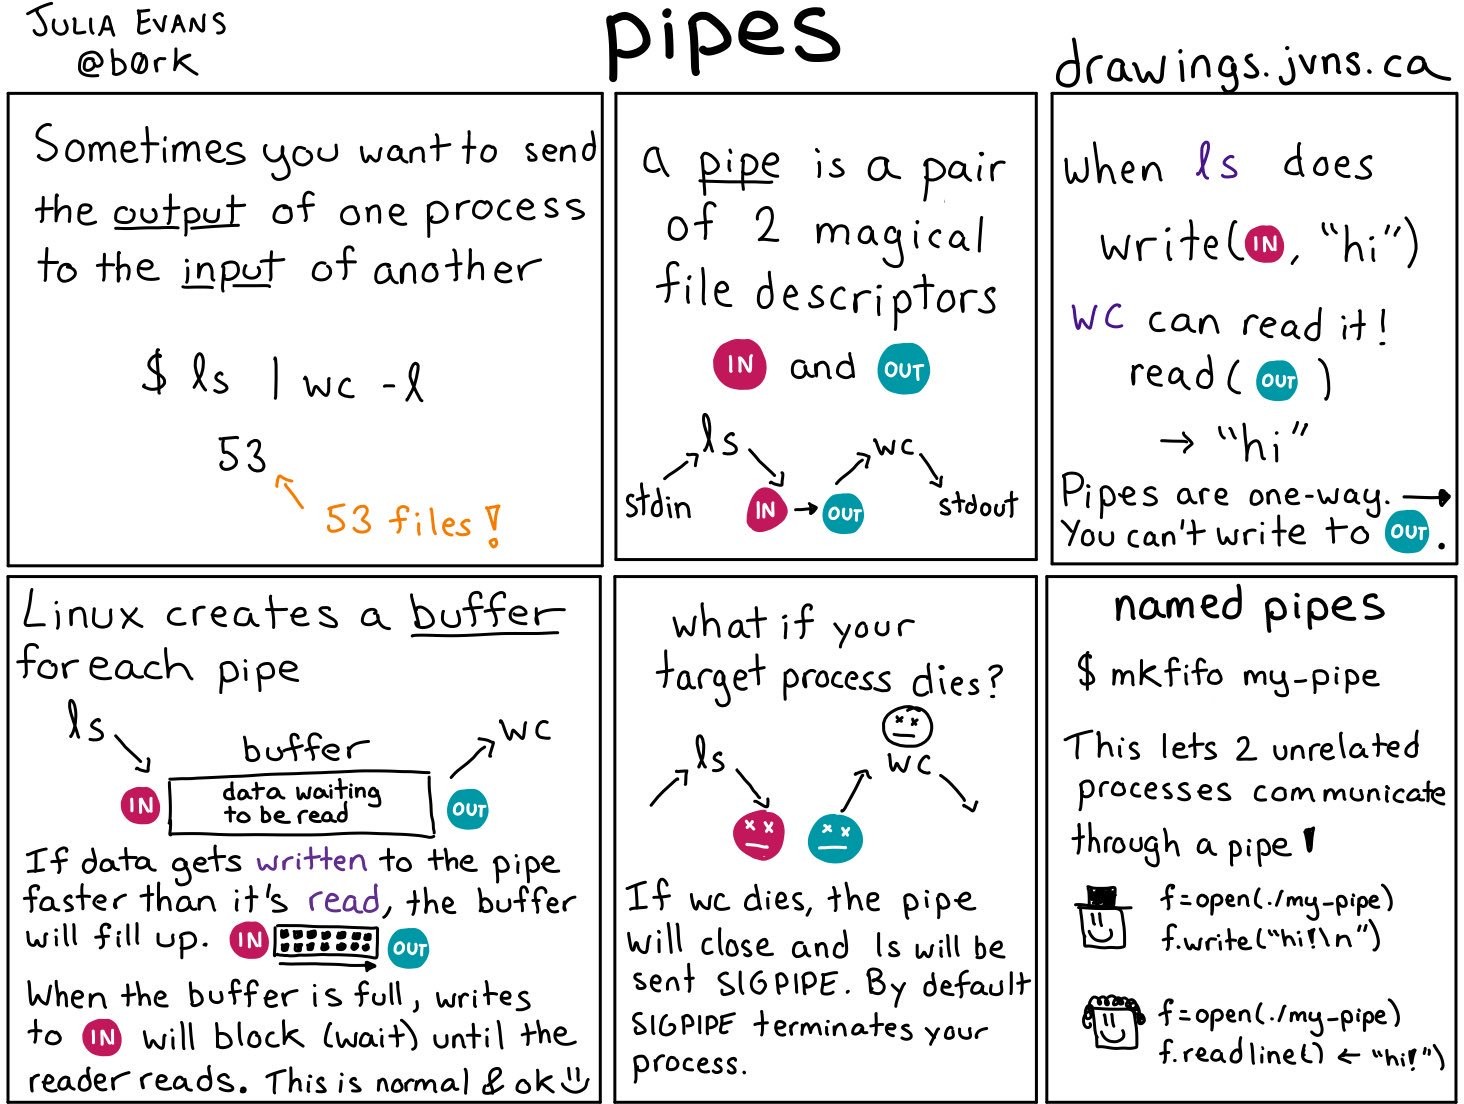 JULIA EVANS
@b0rk
pipes
drawings.jvns.ca
Sometimes you want to send
the output of one process
to the input of another
$ ls | wc -l
53
53 files!
a pipe is a pair
of 2 magical
file descriptors
IN and OUT
ls
wc
stdin
IN
OUT
stdout
when ls does
write(IN, "hi")
wc can read it!
read(OUT)
→ "hi"
Pipes are one-way. →
You can't write to OUT.
Linux creates a buffer
for each pipe
ls
wc
buffer
IN
data waiting
to be read
OUT
If data gets written to the pipe
faster than it's read, the buffer
will fill up. IN OUT
When the buffer is full, writes
to IN will block (wait) until the
reader reads. This is normal & ok
what if your
target process dies?
ls
wc
If wc dies, the pipe
will close and ls will be
sent SIGPIPE. By default
SIGPIPE terminates your
process.
named pipes
$ mkfifo my-pipe
This lets 2 unrelated
processes communicate
through a pipe!
f=open(./my-pipe)
f.write("hi!\n")
f=open(./my-pipe)
f.readline() ← "hi!")